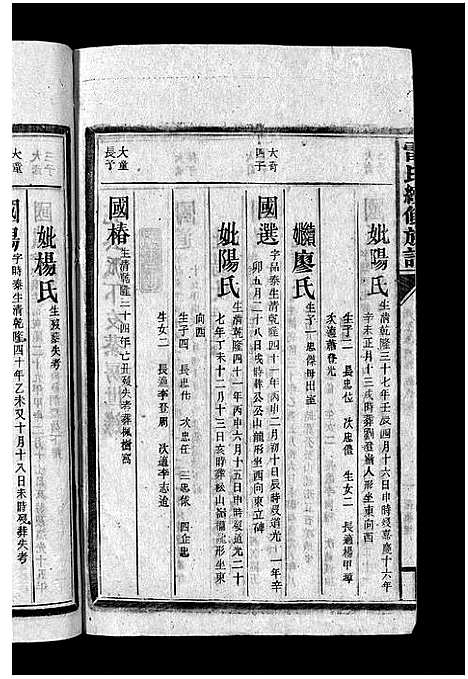 雷氏續修族譜
妣陽氏 生清乾隆三十七年壬辰四月十六日申時歿嘉慶十六年
辛未正月十三戌時葬劉道嶺人形坐東向西
生子二 長忠位 次忠儀 生女二 長適楊甲璋
次適蕭啓光
繼廖氏 生子一忠傑母出室
大奇四子
國選 字品泰生清乾隆四十一年丙申二月初十日辰時歿道光一年辛
卯五月二十八日戌時葬公山龍形坐西向東立碑
妣陽氏 生清乾隆四十一年丙申六月十五日申時歿道光二十
七年丁未十二月十三日亥時葬松山嶺形坐東
向西
生子四 長忠仕 次忠任 三忠俵 四企忠
生女二 長適李登朋 次適李志逵
大童長子
國椿 生清乾隆二十四年亡丑歿失考葬楓樹窩
妣楊氏 生歿葬失考
大童
國易 字時泰生清乾隆四十年乙未又十月十八日未時歿葬失考